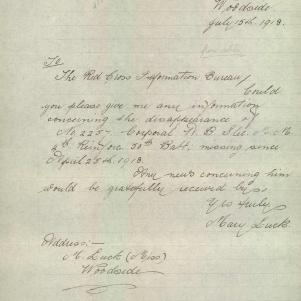 Woodside.
July 15th, 1918.
To
The Red Cross Information Bureau,
Could
you please give me any information
concerning the disappearance of
No 2257. Corporal
Reinforc. 50th Batt. missing since
April 25th, 1918.
Any news concerning him
would be gratefully received by
Yrs truly
Mary Luck.
Address:—
M. Luck (Miss)
Woodside